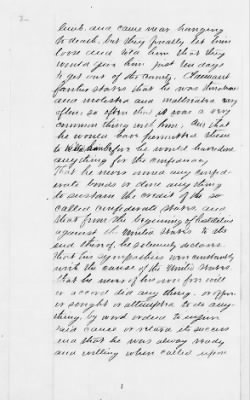 2
limb and came near hanging
to death, but they finally let him
loose and told him that they
would give him just ten days
to get out of the County. Claimant
further states that he was threatened
and molested and maltreated very
often so often that it was a very
common thing with him. And that
he would have permitted them
to before he would have done
anything for the confederacy
That he never owned any confed-
erate bonds or done anything
to sustain the credit of the so
called confederate states and
that from the beginning of hostilities
against the United States to the
end thereof, he solemnly declares
that his sympathies were constantly
with the cause of the United States
that he never of his own free will
or accord did anything, or offer
or sought or attempted to do any-
thing, by word or deed to injure
said cause or retard its success
and that he was always ready
and willing when called upon